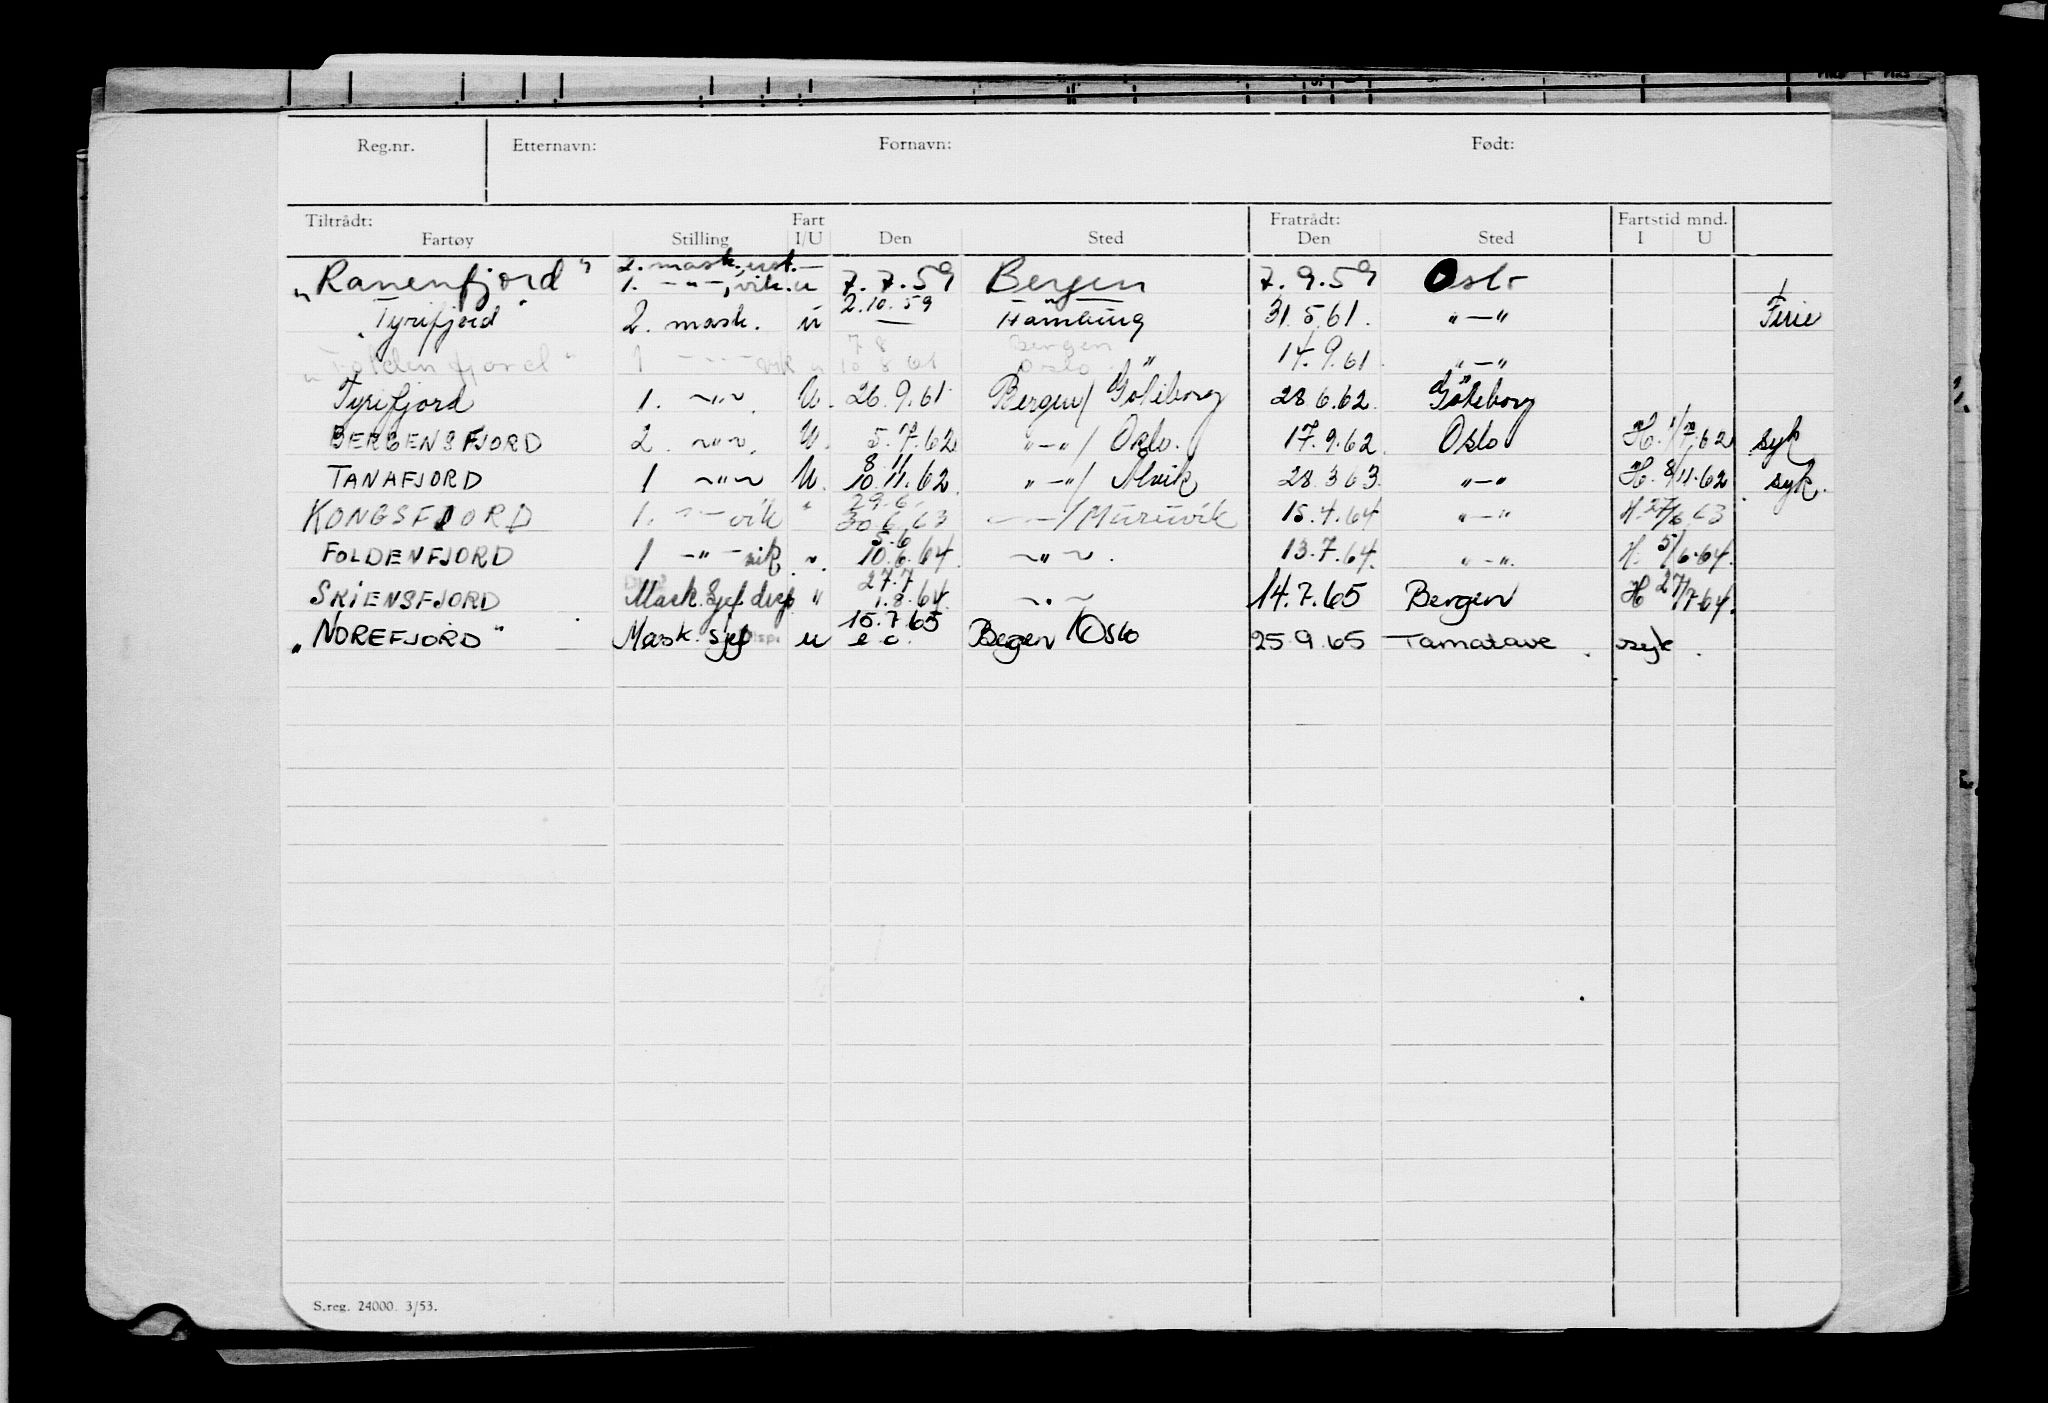 Reg.nr. Etternavn: Fornavn: Født:
Tiltrådt: Fart Fratrådt: Fartstid mnd.
Fartøy Stilling I/U Den Sted Den Sted I U
2. mask.
"Ranenfjord" 1. -"-, vik. u 7.7.59 Bergen 7.9.59 Oslo
"Tyrifjord" 2. mask. u 2.10.59 Hamburg 31.5.61. "-" Ferie
7 8 Bergen
"Foldenfjord" 1 -"- vik u 10 8 61 Oslo 14.9.61 "-"
Tyrifjord 1. ~"~ U. 26.9.61 Bergen/Göteborg 28.6.62. Göteborg
BERGENSFJORD 2 ~"~ U. 5. .62 "-"/Oslo. 17.9.62. Oslo H. 62 syk
8.11
TANAFJORD 1 ~"~ U. 10.11.62. "-"/Alvik 28.3.63. "-" H. 8/11.62 syk.
29.6.
KONGSFJORD 1. -"- vik " 30.6.63 -"-/Muruvik 15.4.64 "-" H. 27/6.63
5.6
FOLDENFJORD 1 -"- vik ". 10.6.64. ~"~. 13.7.64. "-". H. 5/6.64.
27.7
SKIENSFJORD Mask. Sjef disp " 1.8.64. ~"~ 14.7.65 Bergen H 27/7.64.
15.7.65
"NOREFJORD" Mask. sjef Disp. u Bergen/Oslo 25.9.65 Tamatave. syk.
S.reg. 24000. 3/53.